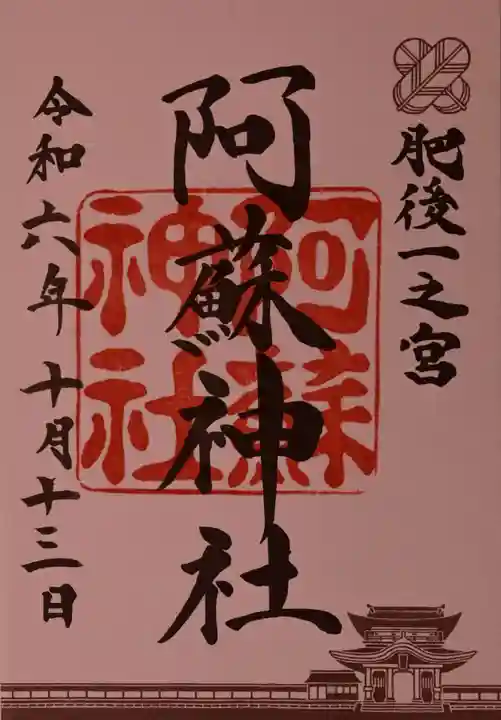 肥後一之宮
阿蘇神社
阿蘇神社
令和六年十月十三日